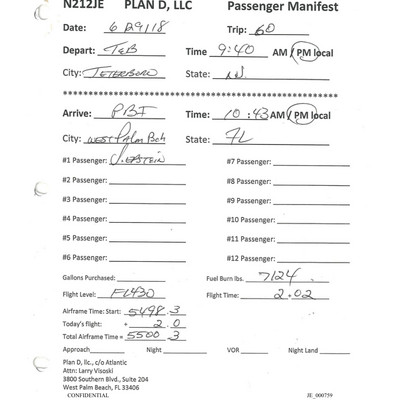 N212JE PLAN D, LLC Passenger Manifest
Date: 6/29/18 Trip: 60
Depart: TEB Time 9:40 AM / PM local
City: TETERBORO State: NJ
Arrive: PBI Time: 10:43 AM / PM local
City: WEST PALM BCH State: FL
#1 Passenger: J. EPSTEIN #7 Passenger:
#2 Passenger: #8 Passenger:
#3 Passenger: #9 Passenger:
#4 Passenger: #10 Passenger:
#5 Passenger: #11 Passenger:
#6 Passenger: #12 Passenger:
Gallons Purchased: Fuel Burn lbs. 7124
Flight Level: FL430 Flight Time: 2.02
Airframe Time: Start: 5498.3
Today's flight: + 2.0
Total Airframe Time = 5500.3
Approach Night VOR Night Land
Plan D, llc., c/o Atlantic
Attn: Larry Visoski
3800 Southern Blvd., Suite 204
West Palm Beach, FL 33406
CONFIDENTIAL JE_000759